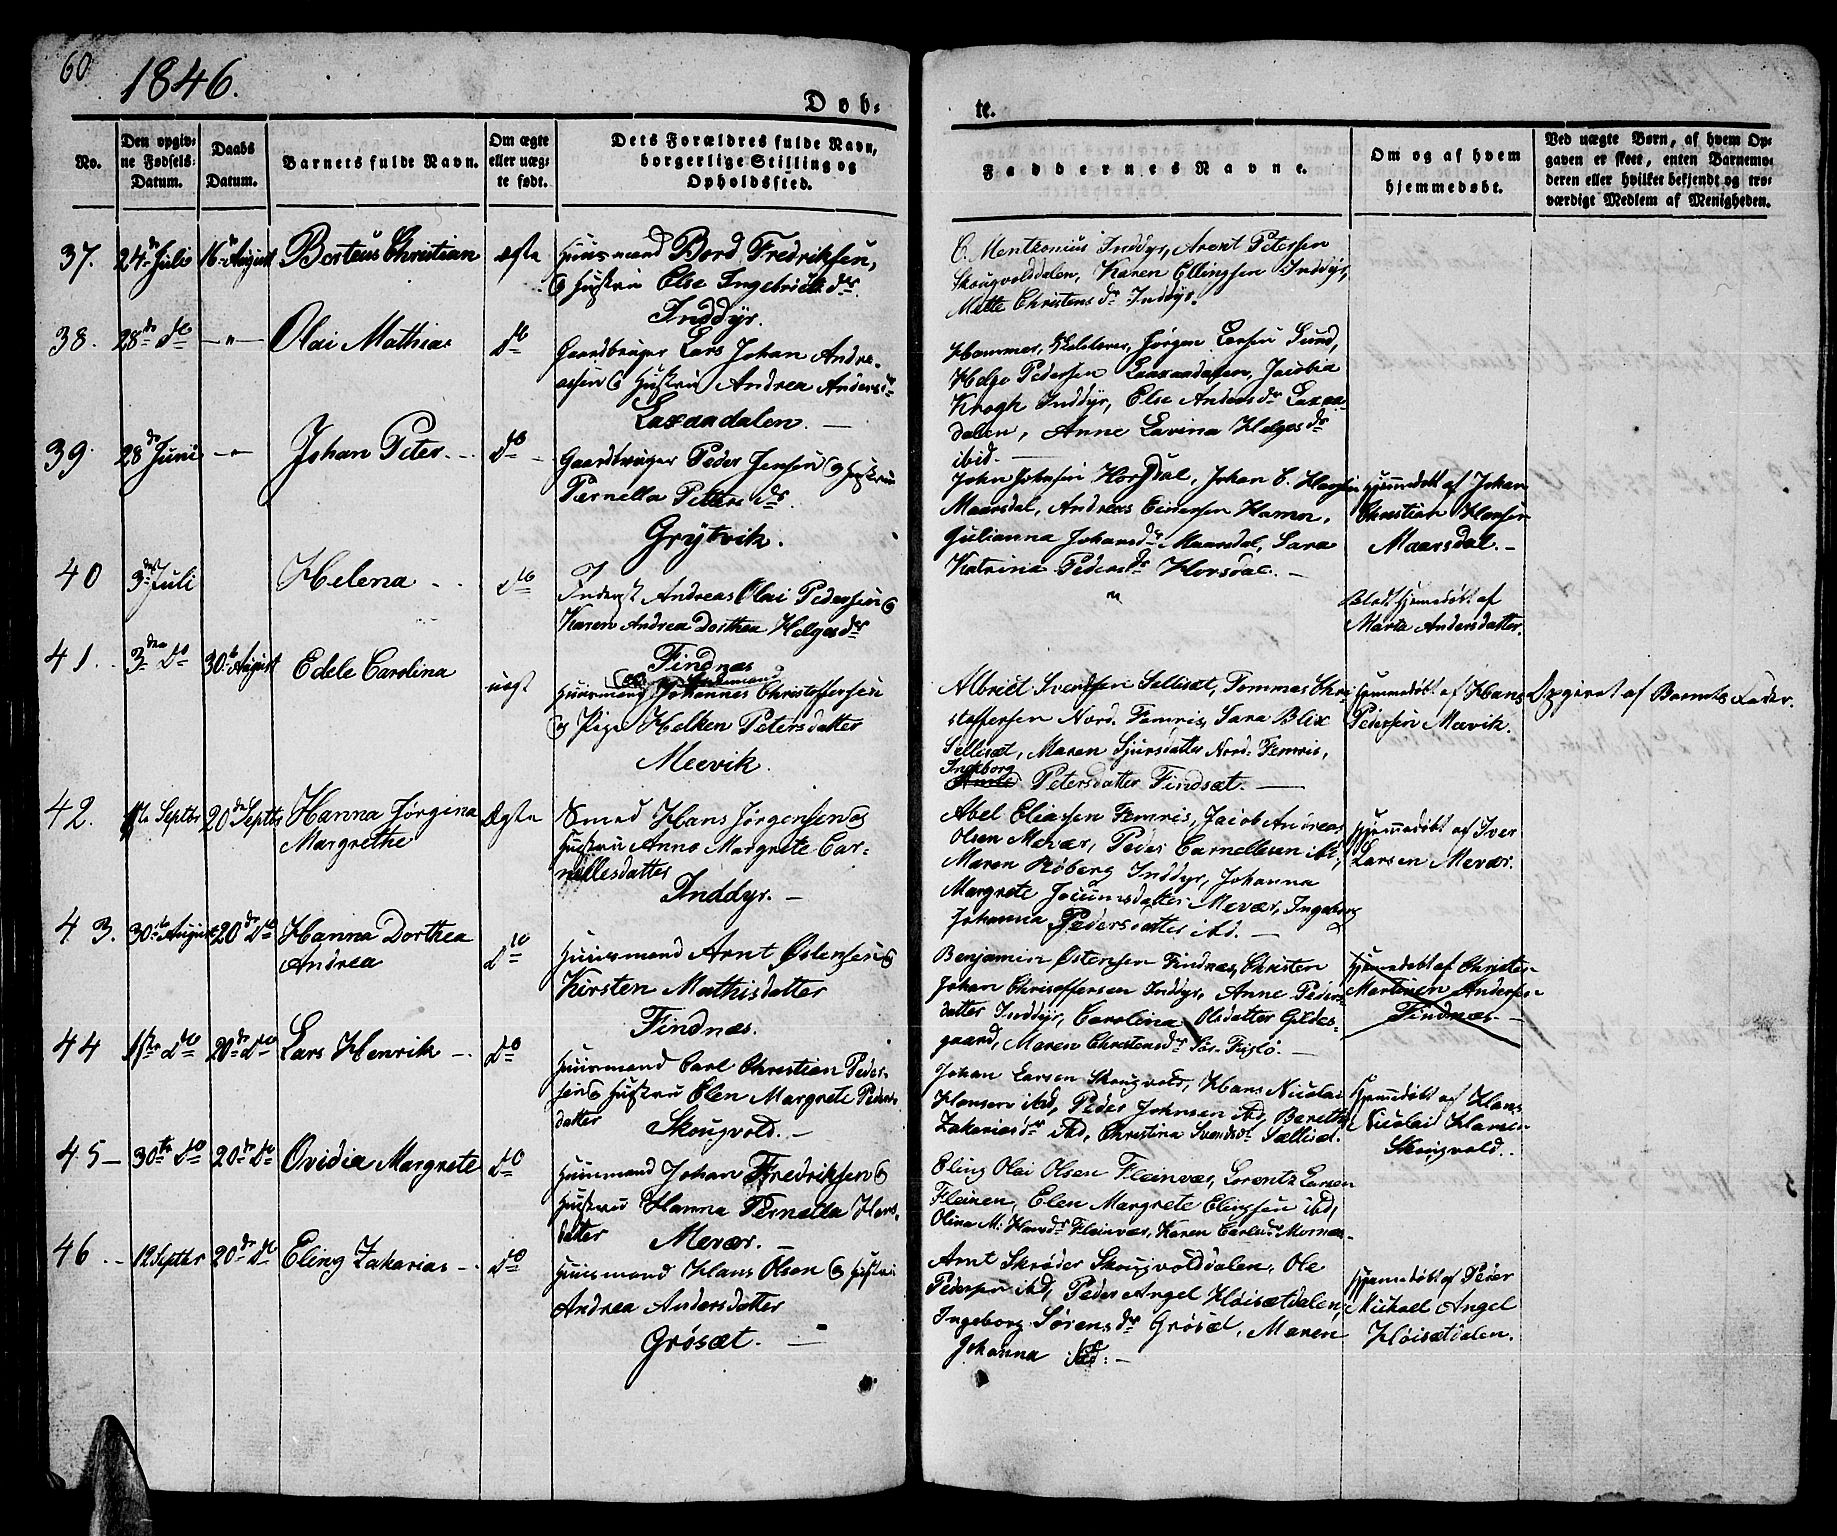 60
1846.
Døb-
te.
No.
Den opgiv-
ne Fødsels-
Datum.
Daabs
Datum.
Barnets fulde Navn.
Om ægte
eller uæg-
te født.
Dets Forældres fulde Navn,
borgerlige Stilling og
Opholdssted.
Faddernes Navne.
Om og af hvem
hjemmedøbt.
Ved uægte Børn, af hvem Op-
gaven er skeet, enten Barnemo-
deren eller hvilket bekjendt og tro-
værdigt Medlem af Menigheden.
37. 24de Juli 16de August Berteus Christian ægte
Huusmand Bord Fredriksen,
og Hustru Else Ingebrikts dr
Inddyr.
C. Mentzonius Inddyr, Arent Petersen
Skougvolddalen, Karen Ellingsen Inddyr,
Mette Christensdr Inddyr.
38. 28de do — " — Olai Mathias do
Gaardbruger Lars Johan Andre-
assen og Hustru Andrea Andersdr
Laxaadalen. —
Hammer, Jørgen Larsen Sund,
Helge Pedersen Laxaadalen, Jacobia
Krogh Inddyr, Else Andersdr Laxaa-
dalen, Anne Lavina Helgesdr
ibid. —
39. 28de Juni — " Johan Peter. do
Gaardbruger Peder Jensen og Hustru
Pernella Petters dr.
Grytvik.
John Johnsen Horsdal, Johan C. Hansen
Maarsdal, Andreas Eidersen Hamn,
Julianna Johansdr Maarsdal, Sara
Katrina Pedersdr Horsdal. —
Hjemmedøbt af Johan
Christian Hansen
Maarsdal. —
40 3die Juli Helena do
Inderst Andreas Olai Pedersen og
Karen Andrea Dorthea Helgesdr
Findnæs
"
Blot hjemmedøbt af
Marta Andersdatter.
41. 3die do 30te August Edele Carolina uægt
Huusmand Johannes Christoffersen
og Pige Helken Petersdatter
Meevik.
Albrict Svendsen Sellisæt, Tommas Chri-
stoffersen Nord. Femris, Sara Blix
Sellisæt, Maren Sjursdatter Nord. Femris,
Ingeborg
Petersdatter Findsæt. —
Hjemmedøbt af Hans
Pedersen Meevik.
Opgivet af Barnets Fader.
42. 1te Septbr 20de Septbr Hanna Jørgina
Margrethe
Ægte
Smed Hans Jørgensen og
Hustru Anne Margrete Car-
nillesdatter
Inddyr. —
Abel Eliassen Femris, Jacob Andreas
Olsen Mevær, Peder Carnellesen ibd,
Maren Røberg Inddyr, Johanna
Margrete Jocumsdatter Mevær, Ingeborg
Johanna Pedersdatter ibd. —
Hjemmedøbt af Iver
Larsen Mevær.
43. 30te August 20de do Hanna Dorthea
Andrea
do
Huusmand Arnt Østensen og
Kirsten Mathisdatter
Findnæs.
Benjamin Østensen Findnæs, Christen
Johan Christoffersen Inddyr, Anne Peders-
datter Inddyr, Carolina Olsdatter Gildes-
gaard, Maren Christensdr Sør. Fuglø. —
Hjemmedøbt af Christen
Martinen Andersen
Findnæs. —
44 1ste do 20de do Lars Henrik do
Huusmand Carl Christian Peder-
sen og Hustru Elen Margrete Peders-
datter
Skougvold. —
Johan Larsen Skougvold, Hans Nicolai
Hansen ibd, Peder Johnsen ibd, Beretha
Zakariasdr ibd, Christina Svendsdr Sællisæt.
Hjemmedøbt af Hans
Nicolai Hansen
Skougvold.
45 — 30te do 20de do Ovidia Margrete do
Huusmand Johan Fredriksen og
Hustru Hanna Pernella Hans-
datter
Mevær. —
Eling Olai Olsen Fleinvær, Lorentz Larsen
Fleinen, Elen Margrete Elingsen ibd,
Olina M. Hansdr Fleinvær, Karen Carlsdr
46 12 Septbr 20de do Eling Zakarias do
Huusmand Hans Olsen og Hustru
Andrea Andersdatter
Grøsæt. —
Arnt Skrøder Skougvolddalen, Ole
Pedersen ibd, Peder Angel Høisætdalen,
Ingeborg Sørensdr Grøsæt, Maren
Johanna ibd: —
Hjemmedøbt af Peder
Michael Angel
Høisætdalen.